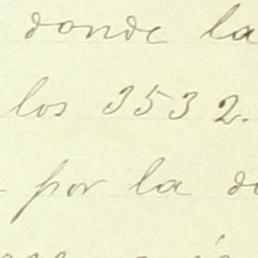 donde la
los 3532.
por la